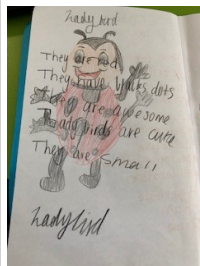 Lady bird
They are red
They have blacks dots
They are awesome
Ladybirds are cute
They are small
Ladybird